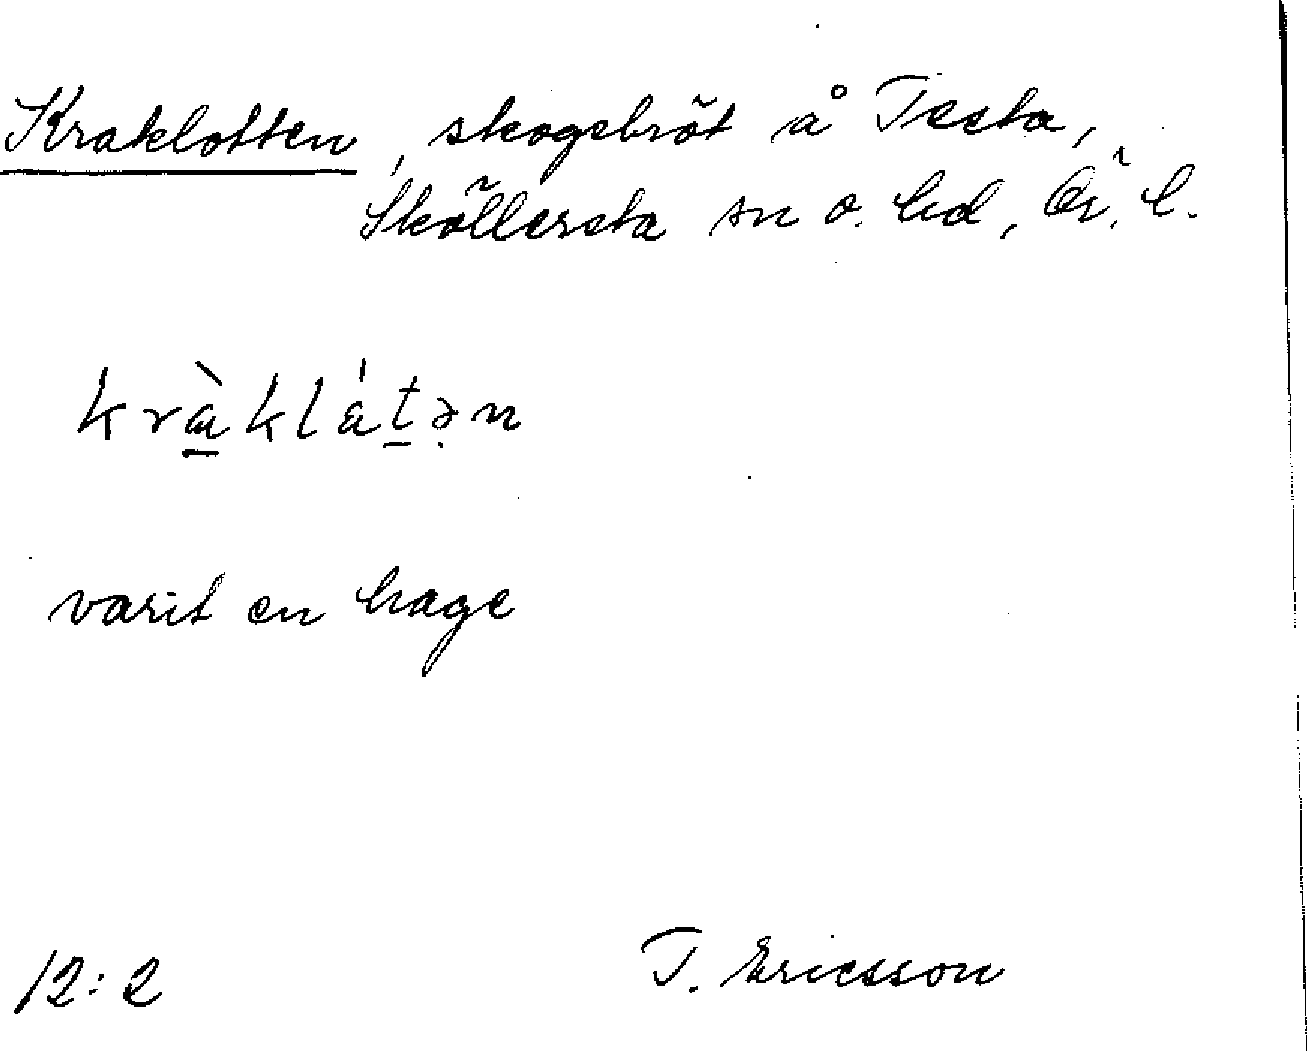 Kraklotten, skogsbröt å Testa,
Sköllersta sn o. hd, Ör. l.
kràklátən
varit en hage
12:2 T. Ericsson